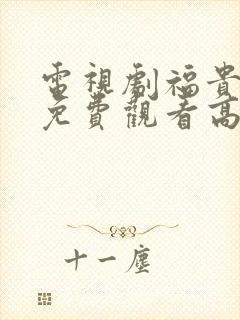 電視劇福貴
免費觀看高
十一塵